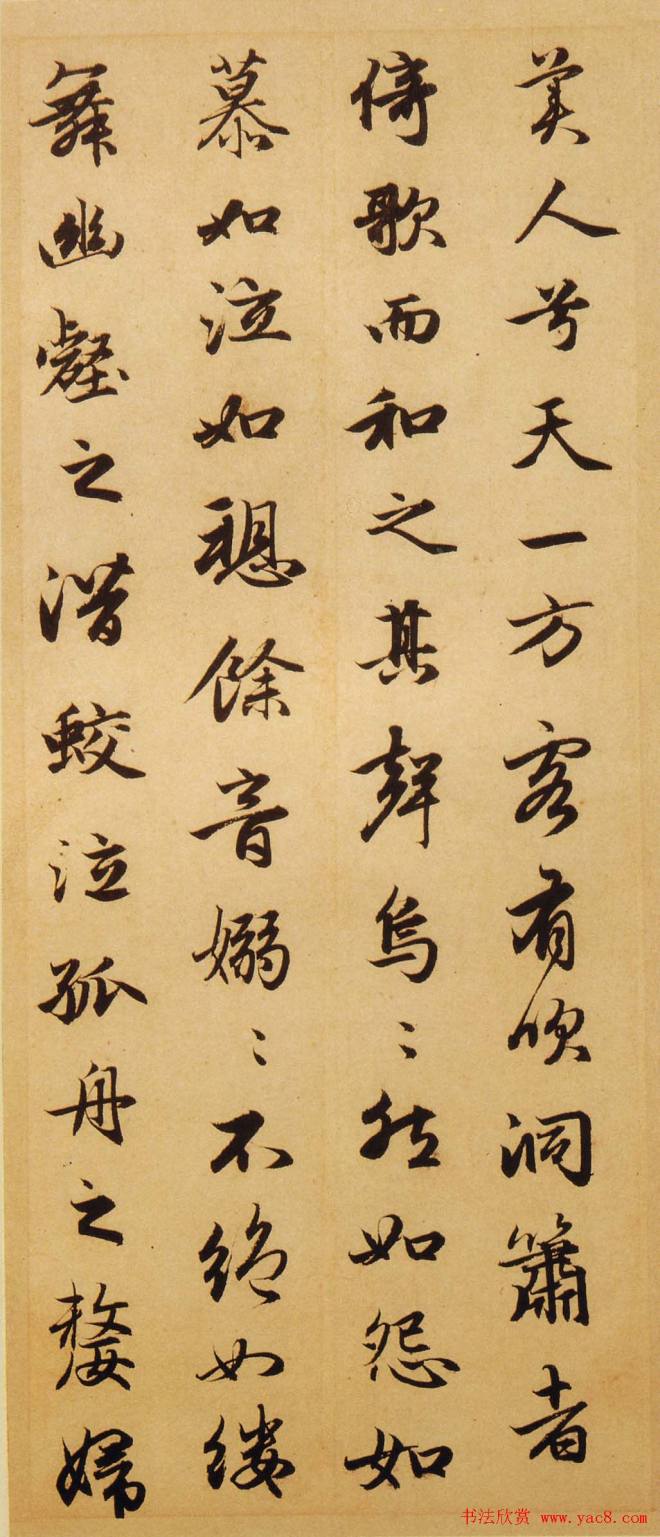 美人兮天一方客有吹洞簫者
倚歌而和之其聲烏〻然如怨如
慕如泣如愬餘音嫋〻不絶如縷
舞幽壑之潛蛟泣孤舟之嫠婦
书法欣赏 www.yac8.com